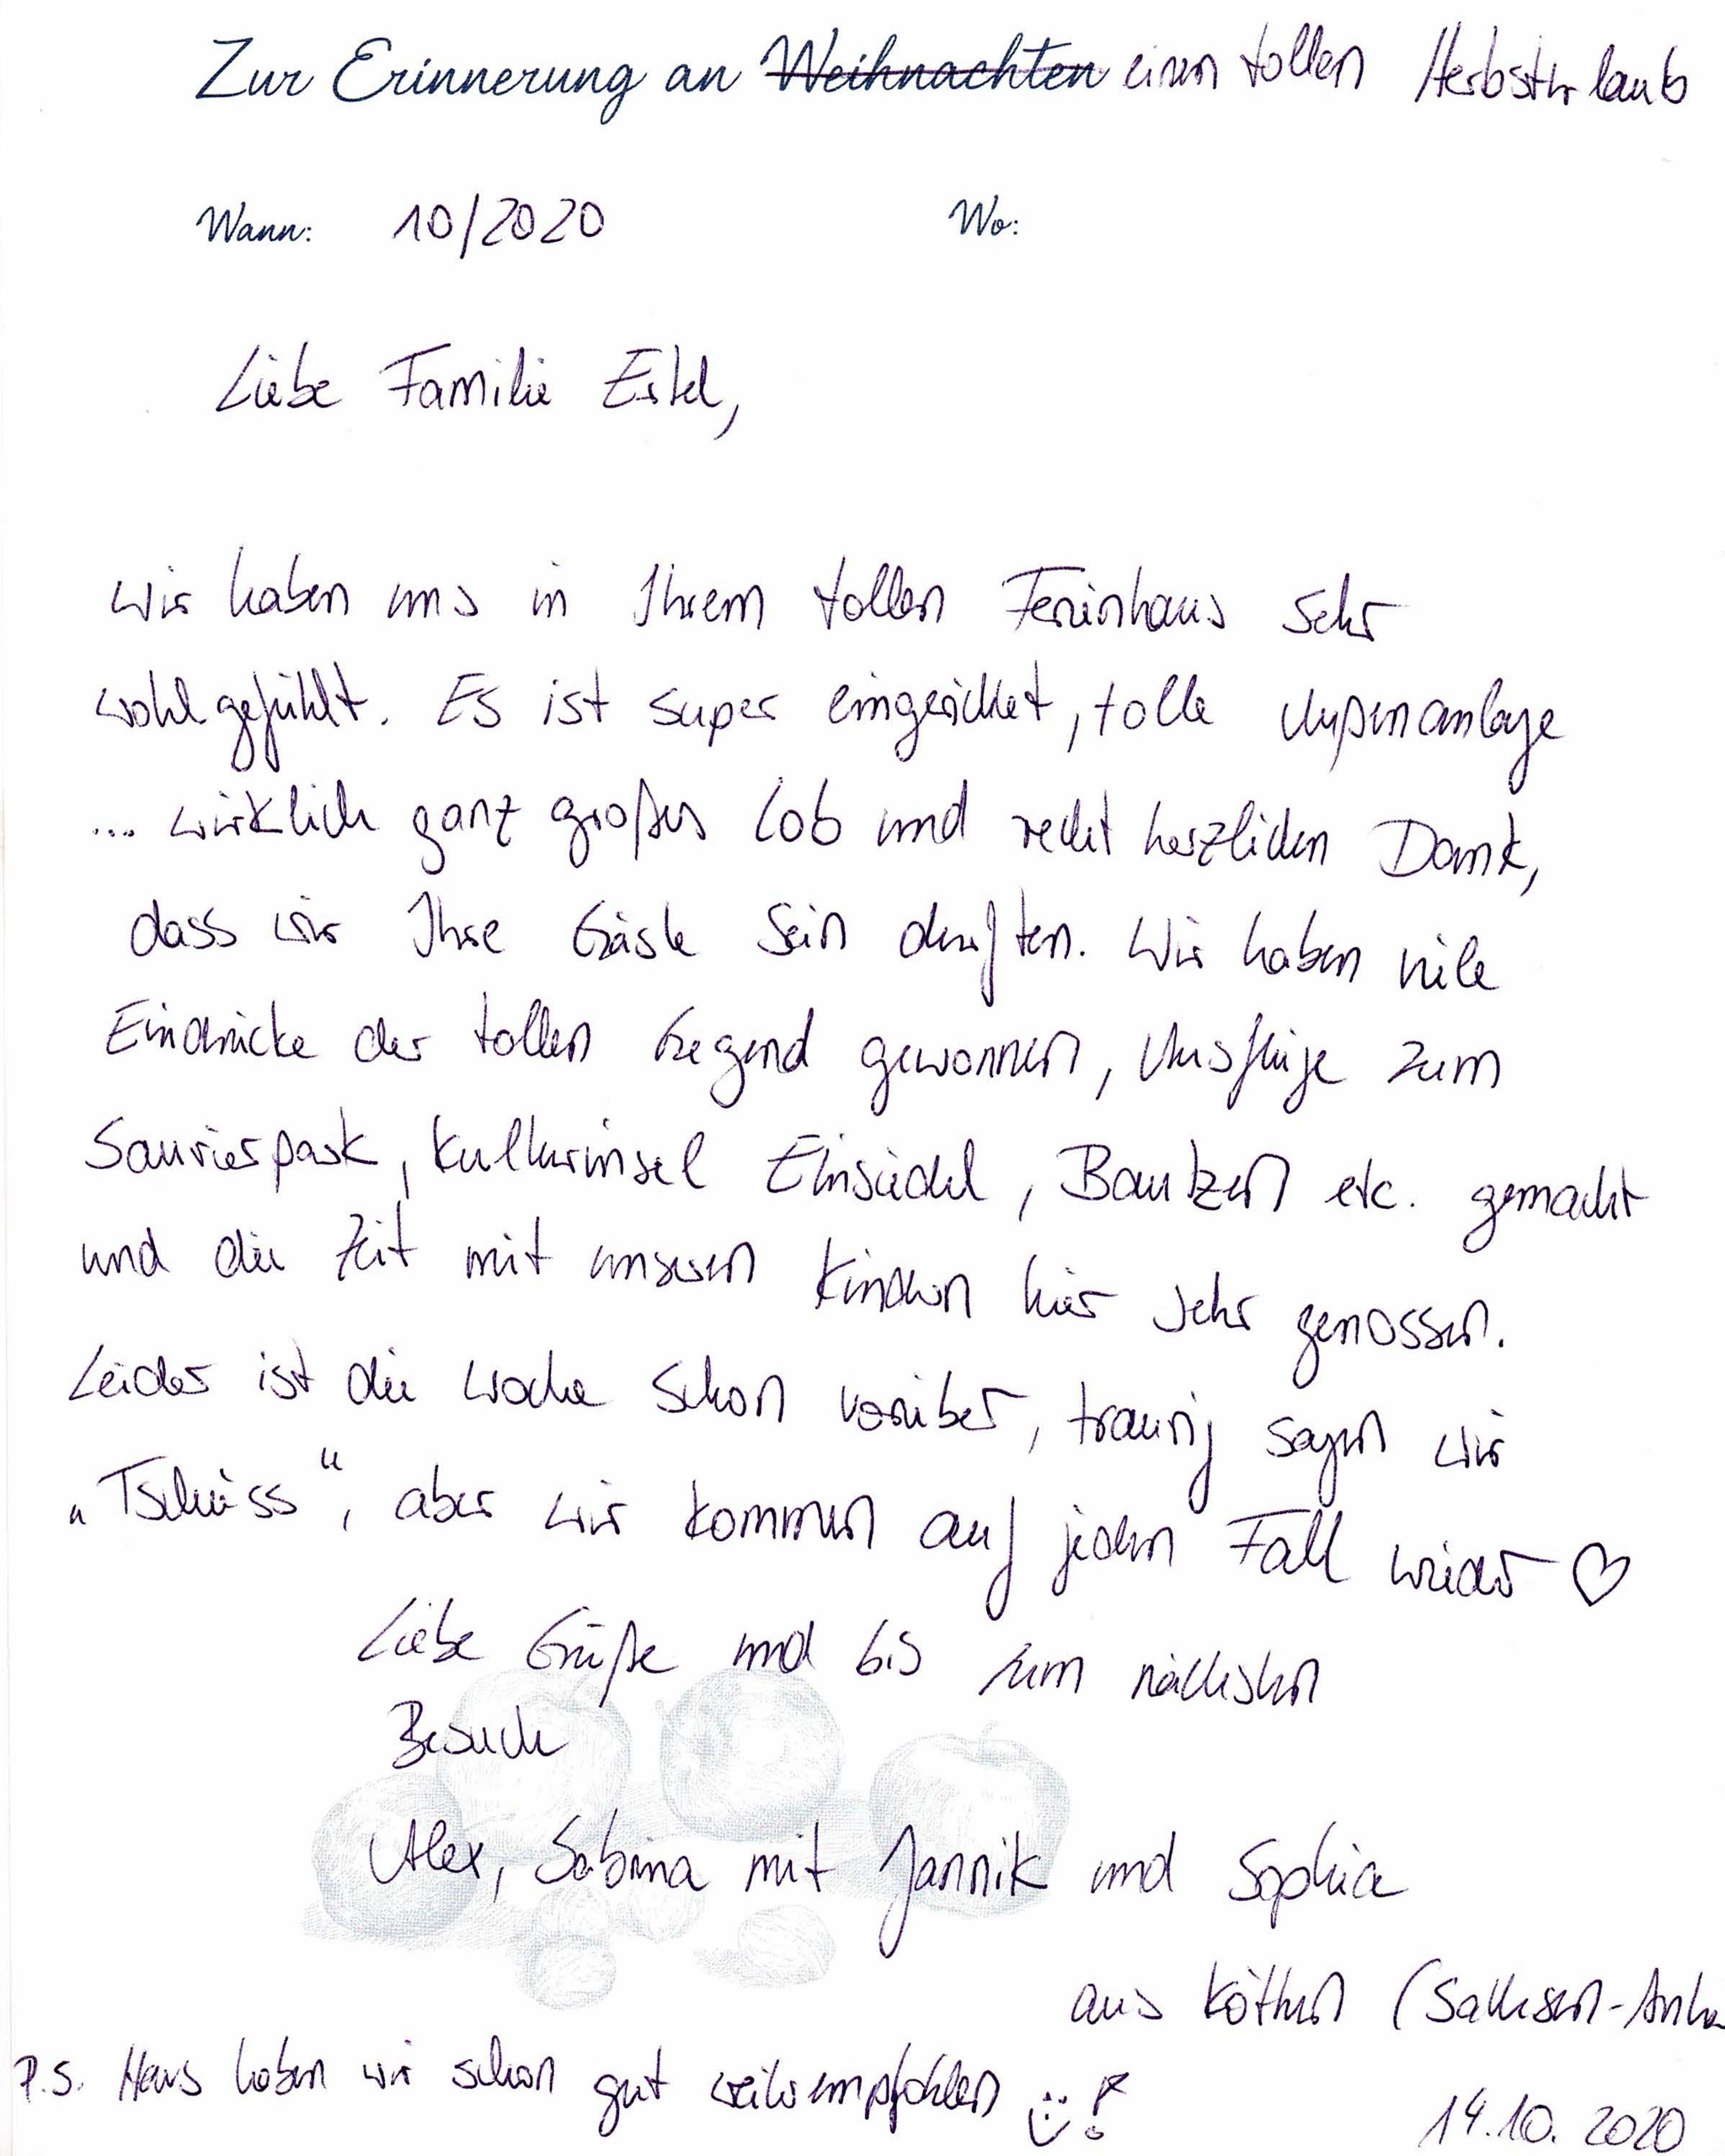 Zur Erinnerung an Weihnachten einen tollen Herbsturlaub
Wann: 10/2020 Wo:
Liebe Familie
wir haben uns in Ihrem tollen Ferienhaus sehr
wohl gefühlt. Es ist super eingerichtet, tolle Außenanlage
... wirklich ganz großes Lob und recht herzlichen Dank,
dass wir Ihre Gäste sein durften. Wir haben viele
Eindrücke der tollen Gegend gewonnen, Ausflüge zum
Saurierpark, Kulturinsel Einsiedel, Bautzen etc. gemacht
und die Zeit mit unseren Kindern hier sehr genossen.
Leider ist die Woche schon vorüber, traurig sagen wir
„Tschüss“, aber wir kommen auf jeden Fall wieder ♡
Liebe Grüße und bis zum nächsten
Besuch
Alex, Sabrina mit Jannik und Sophia
aus Köthen (Sachsen-Anha
P.S. Haus haben wir schon gut weiterempfohlen !
14.10.2020